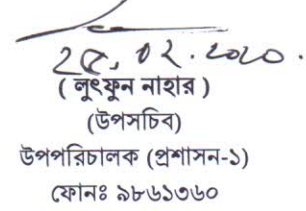 ২৫.০২.২০২০.
( লুৎফুন নাহার )
(উপসচিব)
উপপরিচালক (প্রশাসন-১)
ফোনঃ ৯৮৬১৩৬০